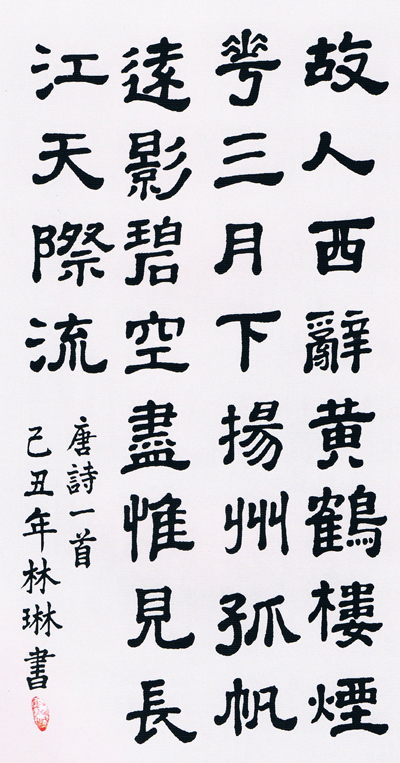 故人西辭黄鶴樓煙
花三月下揚州孤帆
遠影碧空盡惟見長
江天際流
唐詩一首
己丑年林琳書